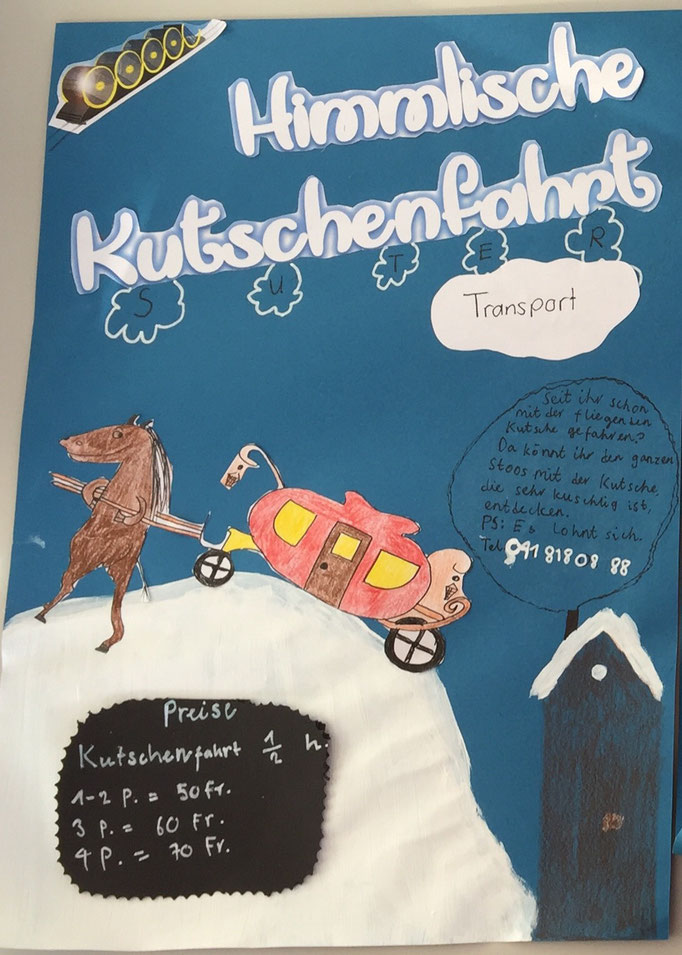 Himmlische
Kutschenfahrt
SUTER
Transport
Seit ihr schon
mit der fliegenden
Kutsche gefahren?
Da könnt ihr den ganzen
Stoos mit der Kutsche,
die sehr kuschlig ist,
entdecken.
PS: Es Lohnt sich.
Tel 041 818 08 88
Preise
Kutschenfahrt 1/2 h.
1-2 P. = 50 Fr.
3 P. = 60 Fr.
4 P. = 70 Fr.